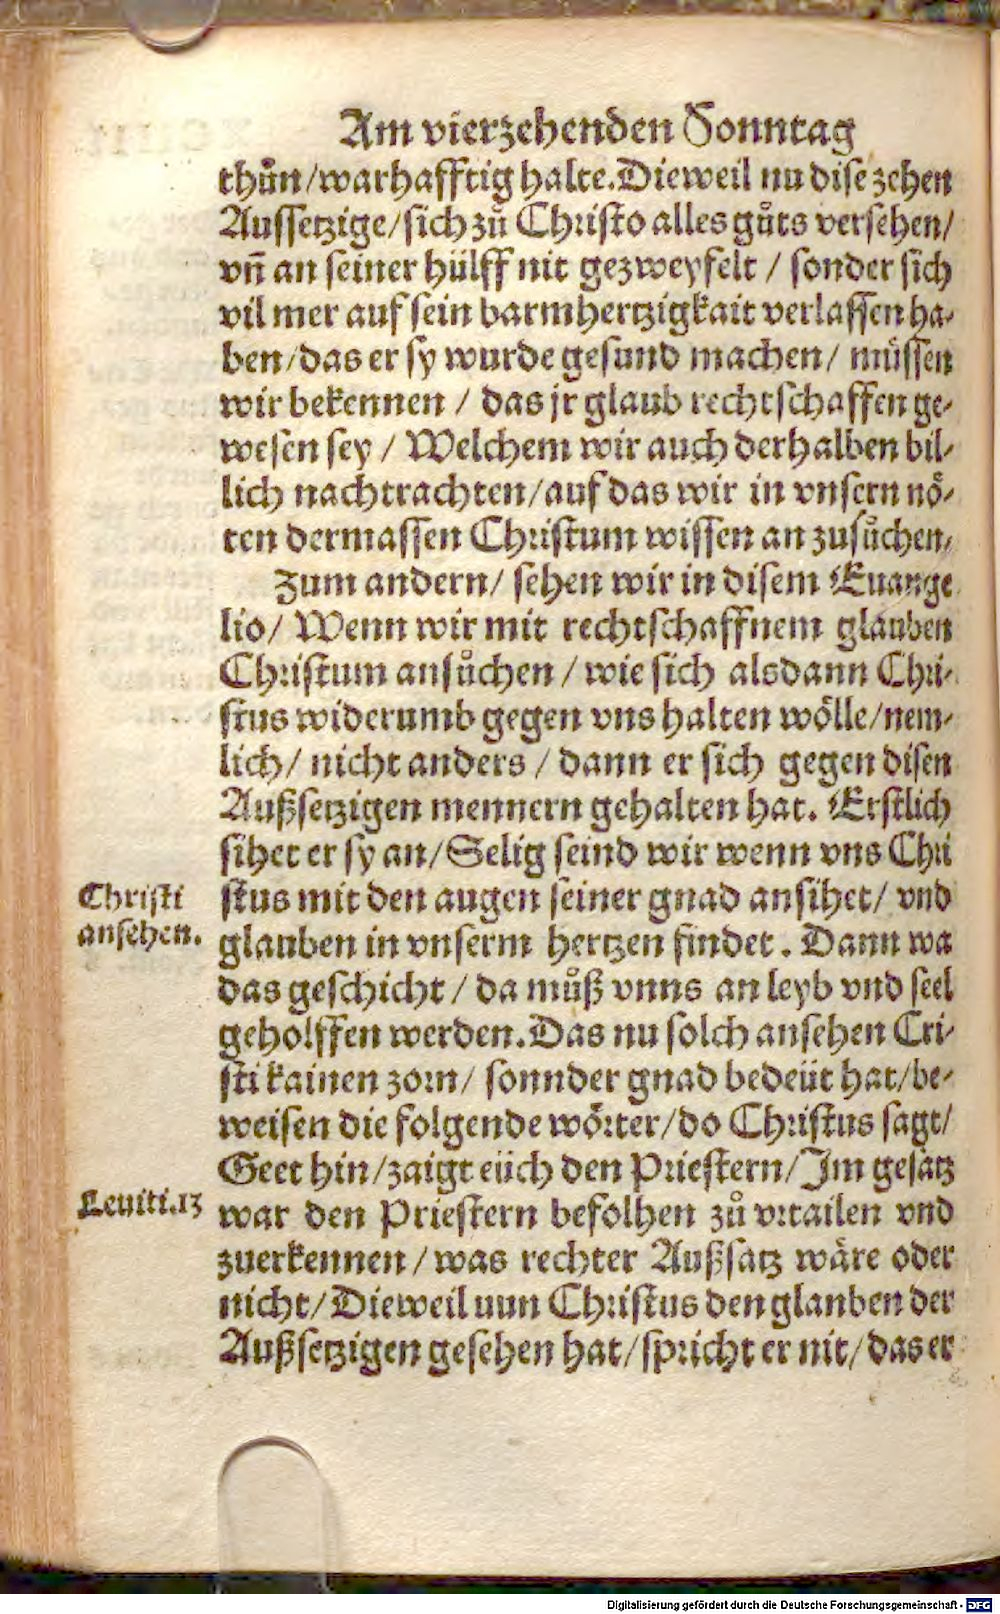 Am vierzehenden Sonntag
thůn/warhafftig halte.Dieweil nu dise zehen
Aussetzige/sich zů Christo alles gůts versehen/
vñ an seiner hülff nit gezweyfelt / sonder sich
vil mer auf sein barmhertzigkait verlassen ha-
ben/das er sy wurde gesund machen/ müssen
wir bekennen / das jr glaub rechtschaffen ge-
wesen sey / Welchem wir auch derhalben bil-
lich nachtrachten/auf das wir in vnsern nö-
ten dermassen Christum wissen an zusůchen,
Zum andern/ sehen wir in disem Euange
lio/ Wenn wir mit rechtschaffnem glauben
Christum ansůchen / wie sich alsdann Chri-
stus widerumb gegen vns halten wölle/nem-
lich/ nicht anders / dann er sich gegen disen
Außsetzigen mennern gehalten hat. Erstlich
sihet er sy an/Selig seind wir wenn vns Chri
Christi
ansehen.
stus mit den augen seiner gnad ansihet/ vnd
glauben in vnserm hertzen findet . Dann wa
das geschicht / da můß vnns an leyb vnd seel
geholffen werden.Das nu solch ansehen Cri-
sti kainen zorn/ sonnder gnad bedeüt hat/be-
weisen die folgende wörter/do Christus sagt/
Geet hin/zaigt eüch den Priestern/Im gesätz
Leuiti.13
war den Priestern befolhen zů vrtailen vnd
zuerkennen / was rechter Außsatz wäre oder
nicht/Dieweil nun Christus den glauben der
Außsetzigen gesehen hat/spricht er nit/das er
Digitalisierung gefördert durch die Deutsche Forschungsgemeinschaft - DFG